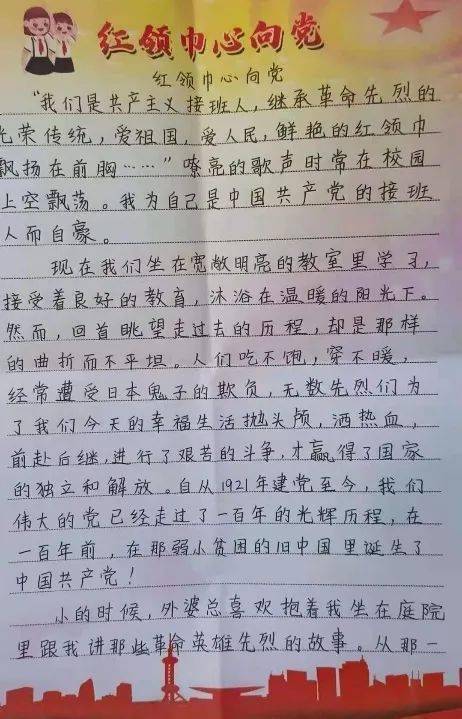 红领巾心向党
红领巾心向党
“我们是共产主义接班人，继承革命先烈的
光荣传统，爱祖国，爱人民，鲜艳的红领巾
飘扬在前胸……”嘹亮的歌声时常在校园
上空飘荡。我为自己是中国共产党的接班
人而自豪。
现在我们坐在宽敞明亮的教室里学习，
接受着良好的教育，沐浴在温暖的阳光下。
然而，回首眺望走过去的历程，却是那样
的曲折而不平坦。人们吃不饱，穿不暖，
经常遭受日本鬼子的欺负，无数先烈们为
了我们今天的幸福生活抛头颅，洒热血，
前赴后继，进行了艰苦的斗争，才赢得了国家
的独立和解放。自从1921年建党至今，我们
伟大的党已经走过了一百年的光辉历程，在
一百年前，在那弱小贫困的旧中国里诞生了
中国共产党！
小的时候，外婆总喜欢抱着我坐在庭院
里跟我讲那些革命英雄先烈的故事。从那一